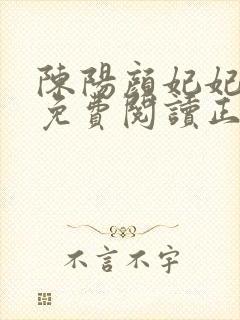 陳陽顏妃妃
免費閱讀正
不言不字